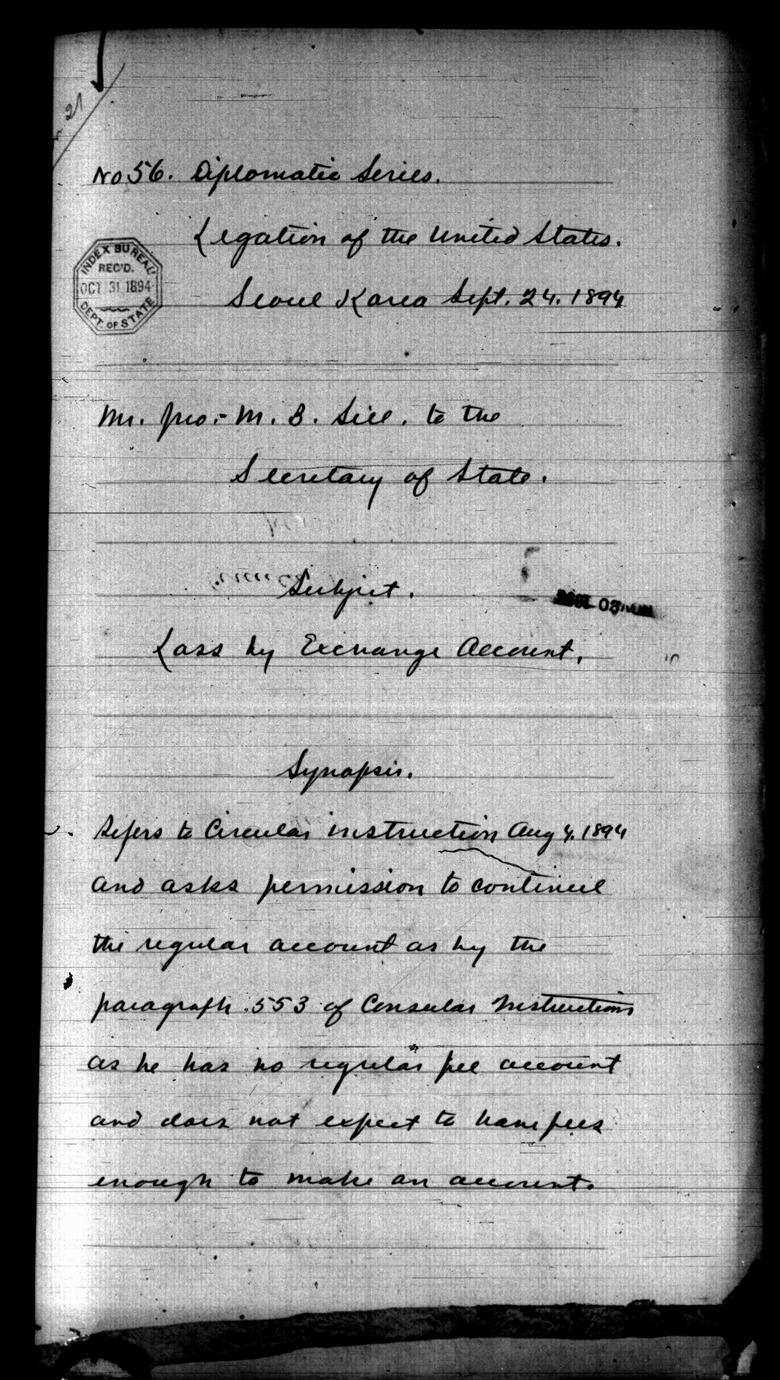 21
No 56. Diplomatic Series.
Legation of the United States.
INDEX BUREAU
REC'D.
OCT 31 1894
DEPT. OF STATE
Seoul Korea Sept. 24. 1894
Mr. Jno. M. B. Sill. to the
Secretary of State.
Subject.
Loss by Exchange Account.
Synopsis.
Refers to Circular instruction Aug 4. 1894
and asks permission to continue
the regular account as by the
paragraph 553 of Consular Instructions
as he has no regular fee account
and does not expect to have fees
enough to make an account.